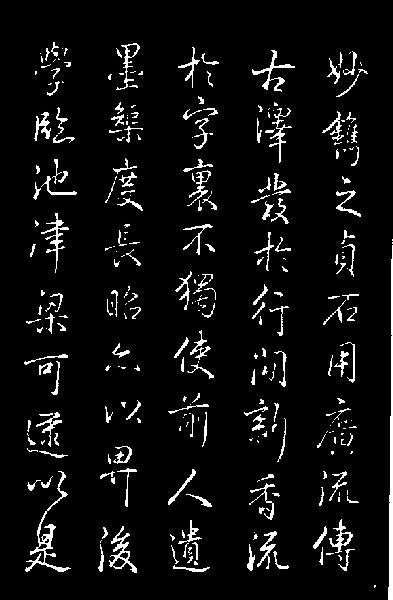 妙鐫之貞石用廣流傳
古澤發於行間新香流
於字裏不獨使前人遺
墨槷度長昭亦以畀後
學臨池津梁可逮以是